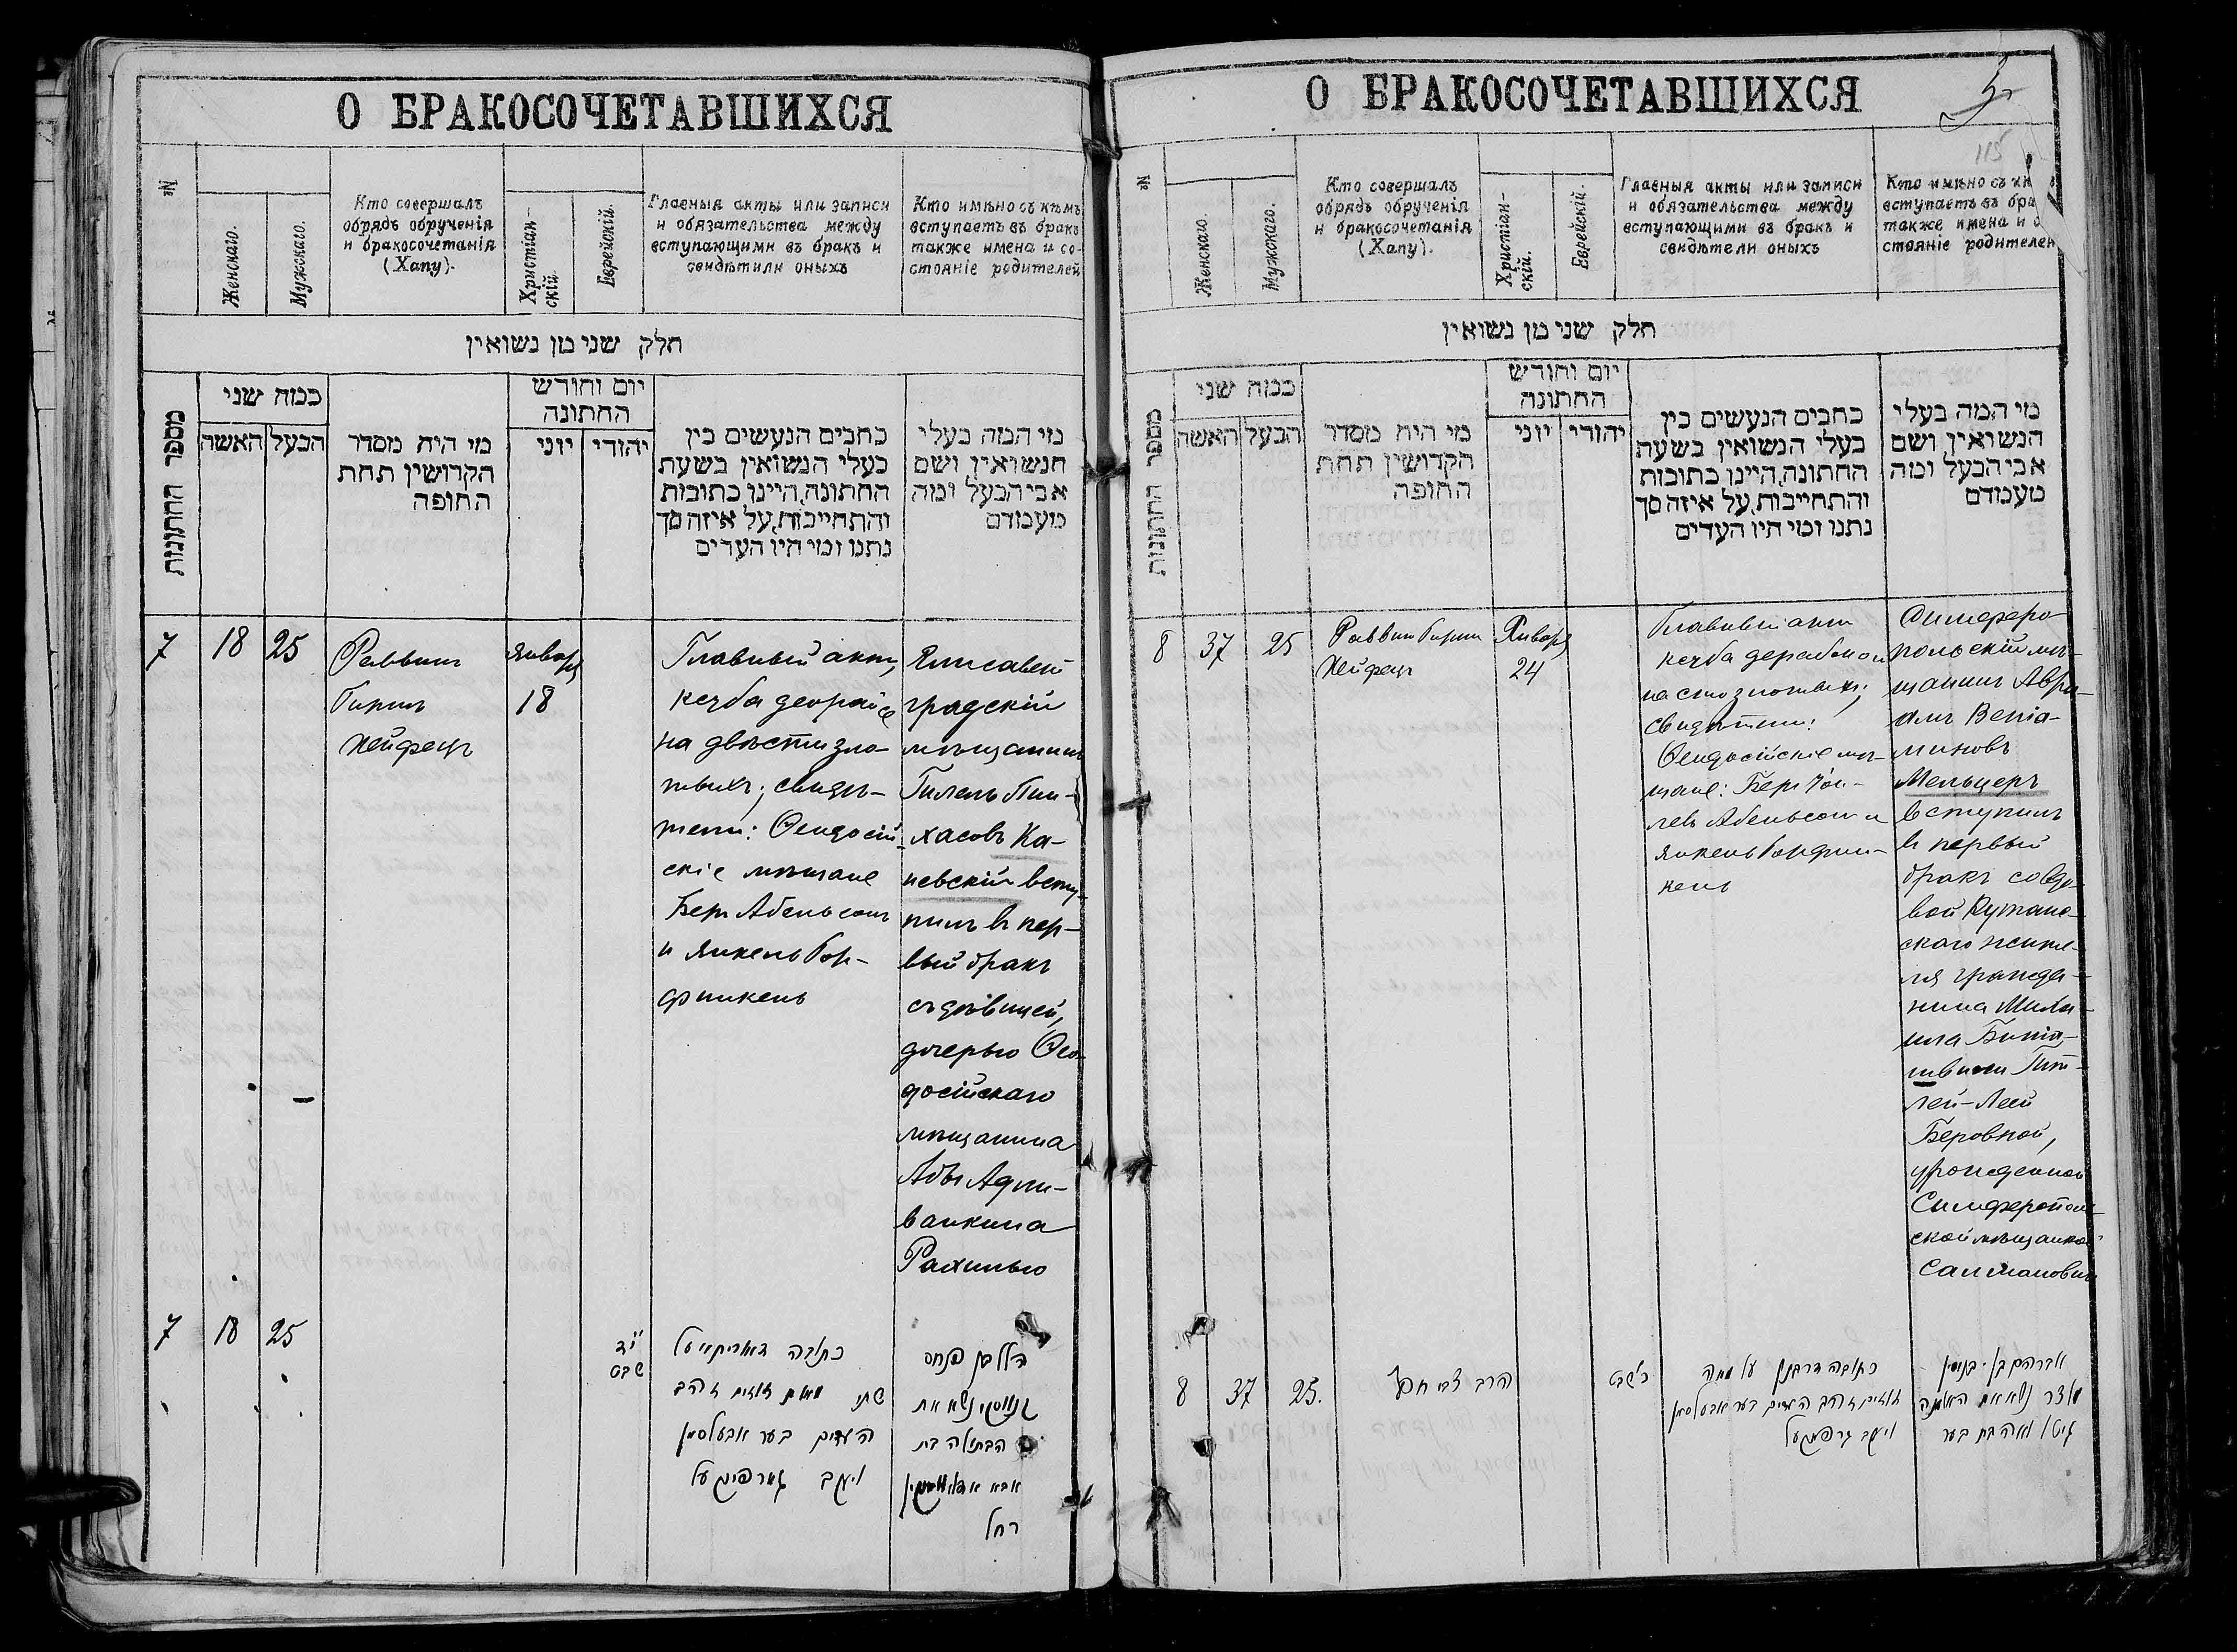 О БРАКОСОЧЕТАВШИХСЯ
№
Женскаго.
Мужскаго.
Кто совершалъ
обрядъ обрученія
и бракосочетанія
(Хапу).
Христіан-
скій.
Еврейскій.
Главныя акты или записи
и обязательства между
вступающими въ бракъ и
свидѣтили оныхъ
Кто имѣно съ кѣмъ
вступаетъ въ бракъ
также имена и со-
стояніе родителей
חלק שני מן נשואין
מספר החתונות
כמה שני
האשה
הבעל
מי היה מסדר
הקדושין תחת
החופה
יום וחודש
החתונה
יוני
יהודי
כתבים הנעשים בין
בעלי הנשואין בשעת
החתונה, היינו כתובות
והתחייבות, על איזה סך
נתנו ומי היו העדים
מי המה בעלי
הנשואין ושם
אבי הבעל ומה
מעמדם
7
18
25
Раввинъ
Гиршъ
Хейфецъ
Января
18
Главный актъ,
кечба деорайсе
на двѣсти зло-
тыхъ; свидѣ-
тели: Ѳеодосій-
скіе мѣщане
Беръ Абельсонъ
и Янкель Гор-
финкель
Елисавет
градскій
мѣщанинъ
Гилель Пин-
хасовъ Ка-
невскій всту-
пилъ въ пер-
вый бракъ
съ дѣвицей,
дочерью Ѳео-
досійскаго
мѣщанина
Абы Адли-
ванкина
Рахилью
7
18
25
י״ד
שבט
כתובה דאורייתא על
שתי מאות זהובים זהב
העדים בער אבעלסאן
ויעקב גארפינקעל
הלל בן פנחס
קנווסקי נשא את
הבתולה בת
אבא
רחל
О БРАКОСОЧЕТАВШИХСЯ
115
№
Женскаго.
Мужскаго.
Кто совершалъ
обрядъ обрученія
и бракосочетанія
(Хапу).
Христіан-
скій.
Еврейскій.
Главныя акты или записи
и обязательства между
вступающими въ бракъ и
свидѣтели оныхъ
Кто имѣно съ
вступаетъ въ бра
также имена и с
стояніе родителей
חלק שני מן נשואין
מספר החתונות
כמה שני
האשה
הבעל
מי היה מסדר
הקדושין תחת
החופה
יום וחודש
החתונה
יוני
יהודי
כתבים הנעשים בין
בעלי הנשואין בשעת
החתונה, היינו כתובות
והתחייבות, על איזה סך
נתנו ומי היו העדים
מי המה בעלי
הנשואין ושם
אבי הבעל ומה
מעמדם
8
37
25
Раввинъ Гиршъ
Хейфецъ
Января
24
Главный актъ
кечба дерабонон
на сто злотыхъ;
свидѣтели:
Ѳеодосійскіе мѣ-
щане: Беръ Іои-
левъ Абельсонъ и
Янкель Горфин-
кель
Симферо-
польскій мѣ-
щанинъ Авра-
амъ Веніа-
миновъ
Мельцеръ
вступилъ
въ первый
бракъ со вдо-
вой Кутаис-
скаго жите-
ля гражда-
нина Миха-
ила
Гит-
лей-Леей
Беровной,
урожденной
Симферополь-
ской мѣщанкой
Салманович
8
37
25.
הרב צבי חפץ
כ׳ שבט
כתובה דרבנן על מאה
זהובים זהב העדים בער אבעלסאן
ויעקב גרפינקעל
אברהם בן בנימין
מלצר נשא את האלמנה
גיטל לאה בת בער